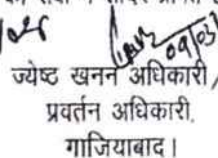 09/03
ज्येष्ठ खनन अधिकारी/
प्रवर्तन अधिकारी,
गाजियाबाद।